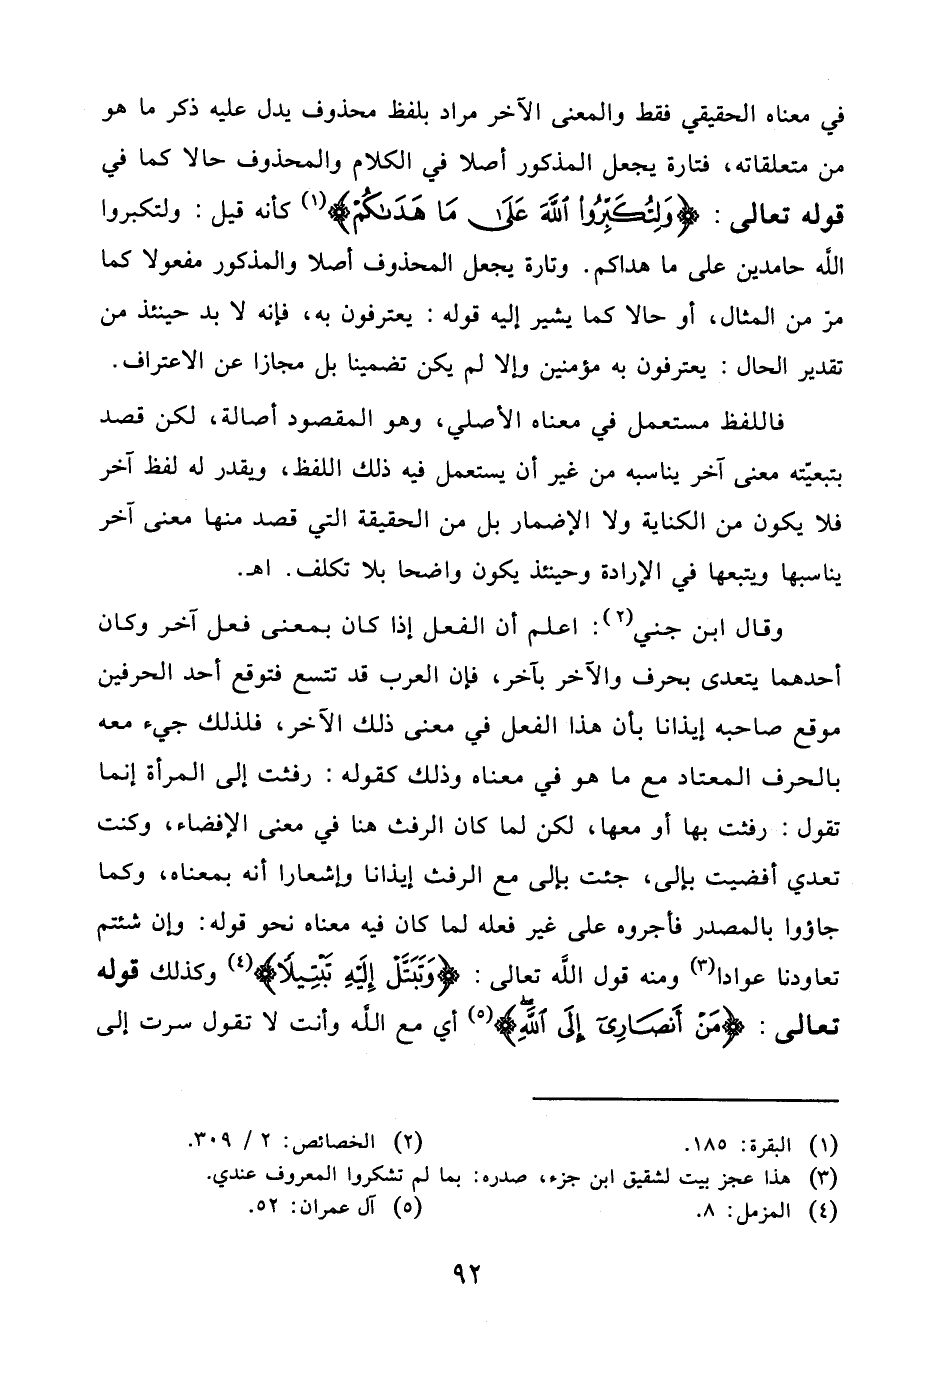 في معناه الحقيقي فقط والمعنى الآخر مراد بلفظ محذوف يدل عليه ذكر ما هو
من متعلقاته، فتارة يجعل المذكور أصلا في الكلام والمحذوف حالا كما في
قوله تعالى : ﴿وَلِتُكَبِّرُوا۟ ٱللَّهَ عَلَىٰ مَا هَدَىٰكُمْ﴾(١) كأنه قيل : ولتكبروا
اللَّه حامدين على ما هداكم. وتارة يجعل المحذوف أصلا والمذكور مفعولا كما
مرّ من المثال، أو حالا كما يشير إليه قوله : يعترفون به، فإنه لا بد حينئذ من
تقدير الحال : يعترفون به مؤمنين وإلا لم يكن تضمينا بل مجازا عن الاعتراف.
فاللفظ مستعمل في معناه الأصلي، وهو المقصود أصالة، لكن قصد
بتبعيّته معنى آخر يناسبه من غير أن يستعمل فيه ذلك اللفظ، ويقدر له لفظ آخر
فلا يكون من الكناية ولا الإضمار بل من الحقيقة التي قصد منها معنى آخر
يناسبها ويتبعها في الإرادة وحينئذ يكون واضحا بلا تكلف. اهـ.
وقال ابن جني(٢): اعلم أن الفعل إذا كان بمعنى فعل آخر وكان
أحدهما يتعدى بحرف والآخر بآخر، فإن العرب قد تتسع فتوقع أحد الحرفين
موقع صاحبه إيذانا بأن هذا الفعل في معنى ذلك الآخر، فلذلك جيء معه
بالحرف المعتاد مع ما هو في معناه وذلك كقوله : رفثت إلى المرأة إنما
تقول : رفثت بها أو معها، لكن لما كان الرفث هنا في معنى الإفضاء، وكنت
تعدي أفضيت بإلى، جئت بإلى مع الرفث إيذانا وإشعارا أنه بمعناه، وكما
جاؤوا بالمصدر فأجروه على غير فعله لما كان فيه معناه نحو قوله: وإن شئتم
تعاودنا عوادا(٣) ومنه قول اللَّه تعالى : ﴿وَتَبَتَّلْ إِلَيْهِ تَبْتِيلًا﴾(٤) وكذلك قوله
تعالى : ﴿مَنْ أَنصَارِىٓ إِلَى ٱللَّهِۖ﴾(٥) أي مع اللَّه وأنت لا تقول سرت إلى
(١) البقرة: ١٨٥. (٢) الخصائص: ٢ / ٣٠٩.
(٣) هذا عجز بيت لشقيق ابن جزء، صدره: بما لم تشكروا المعروف عندي.
(٤) المزمل: ٨. (٥) آل عمران: ٥٢.
٩٢